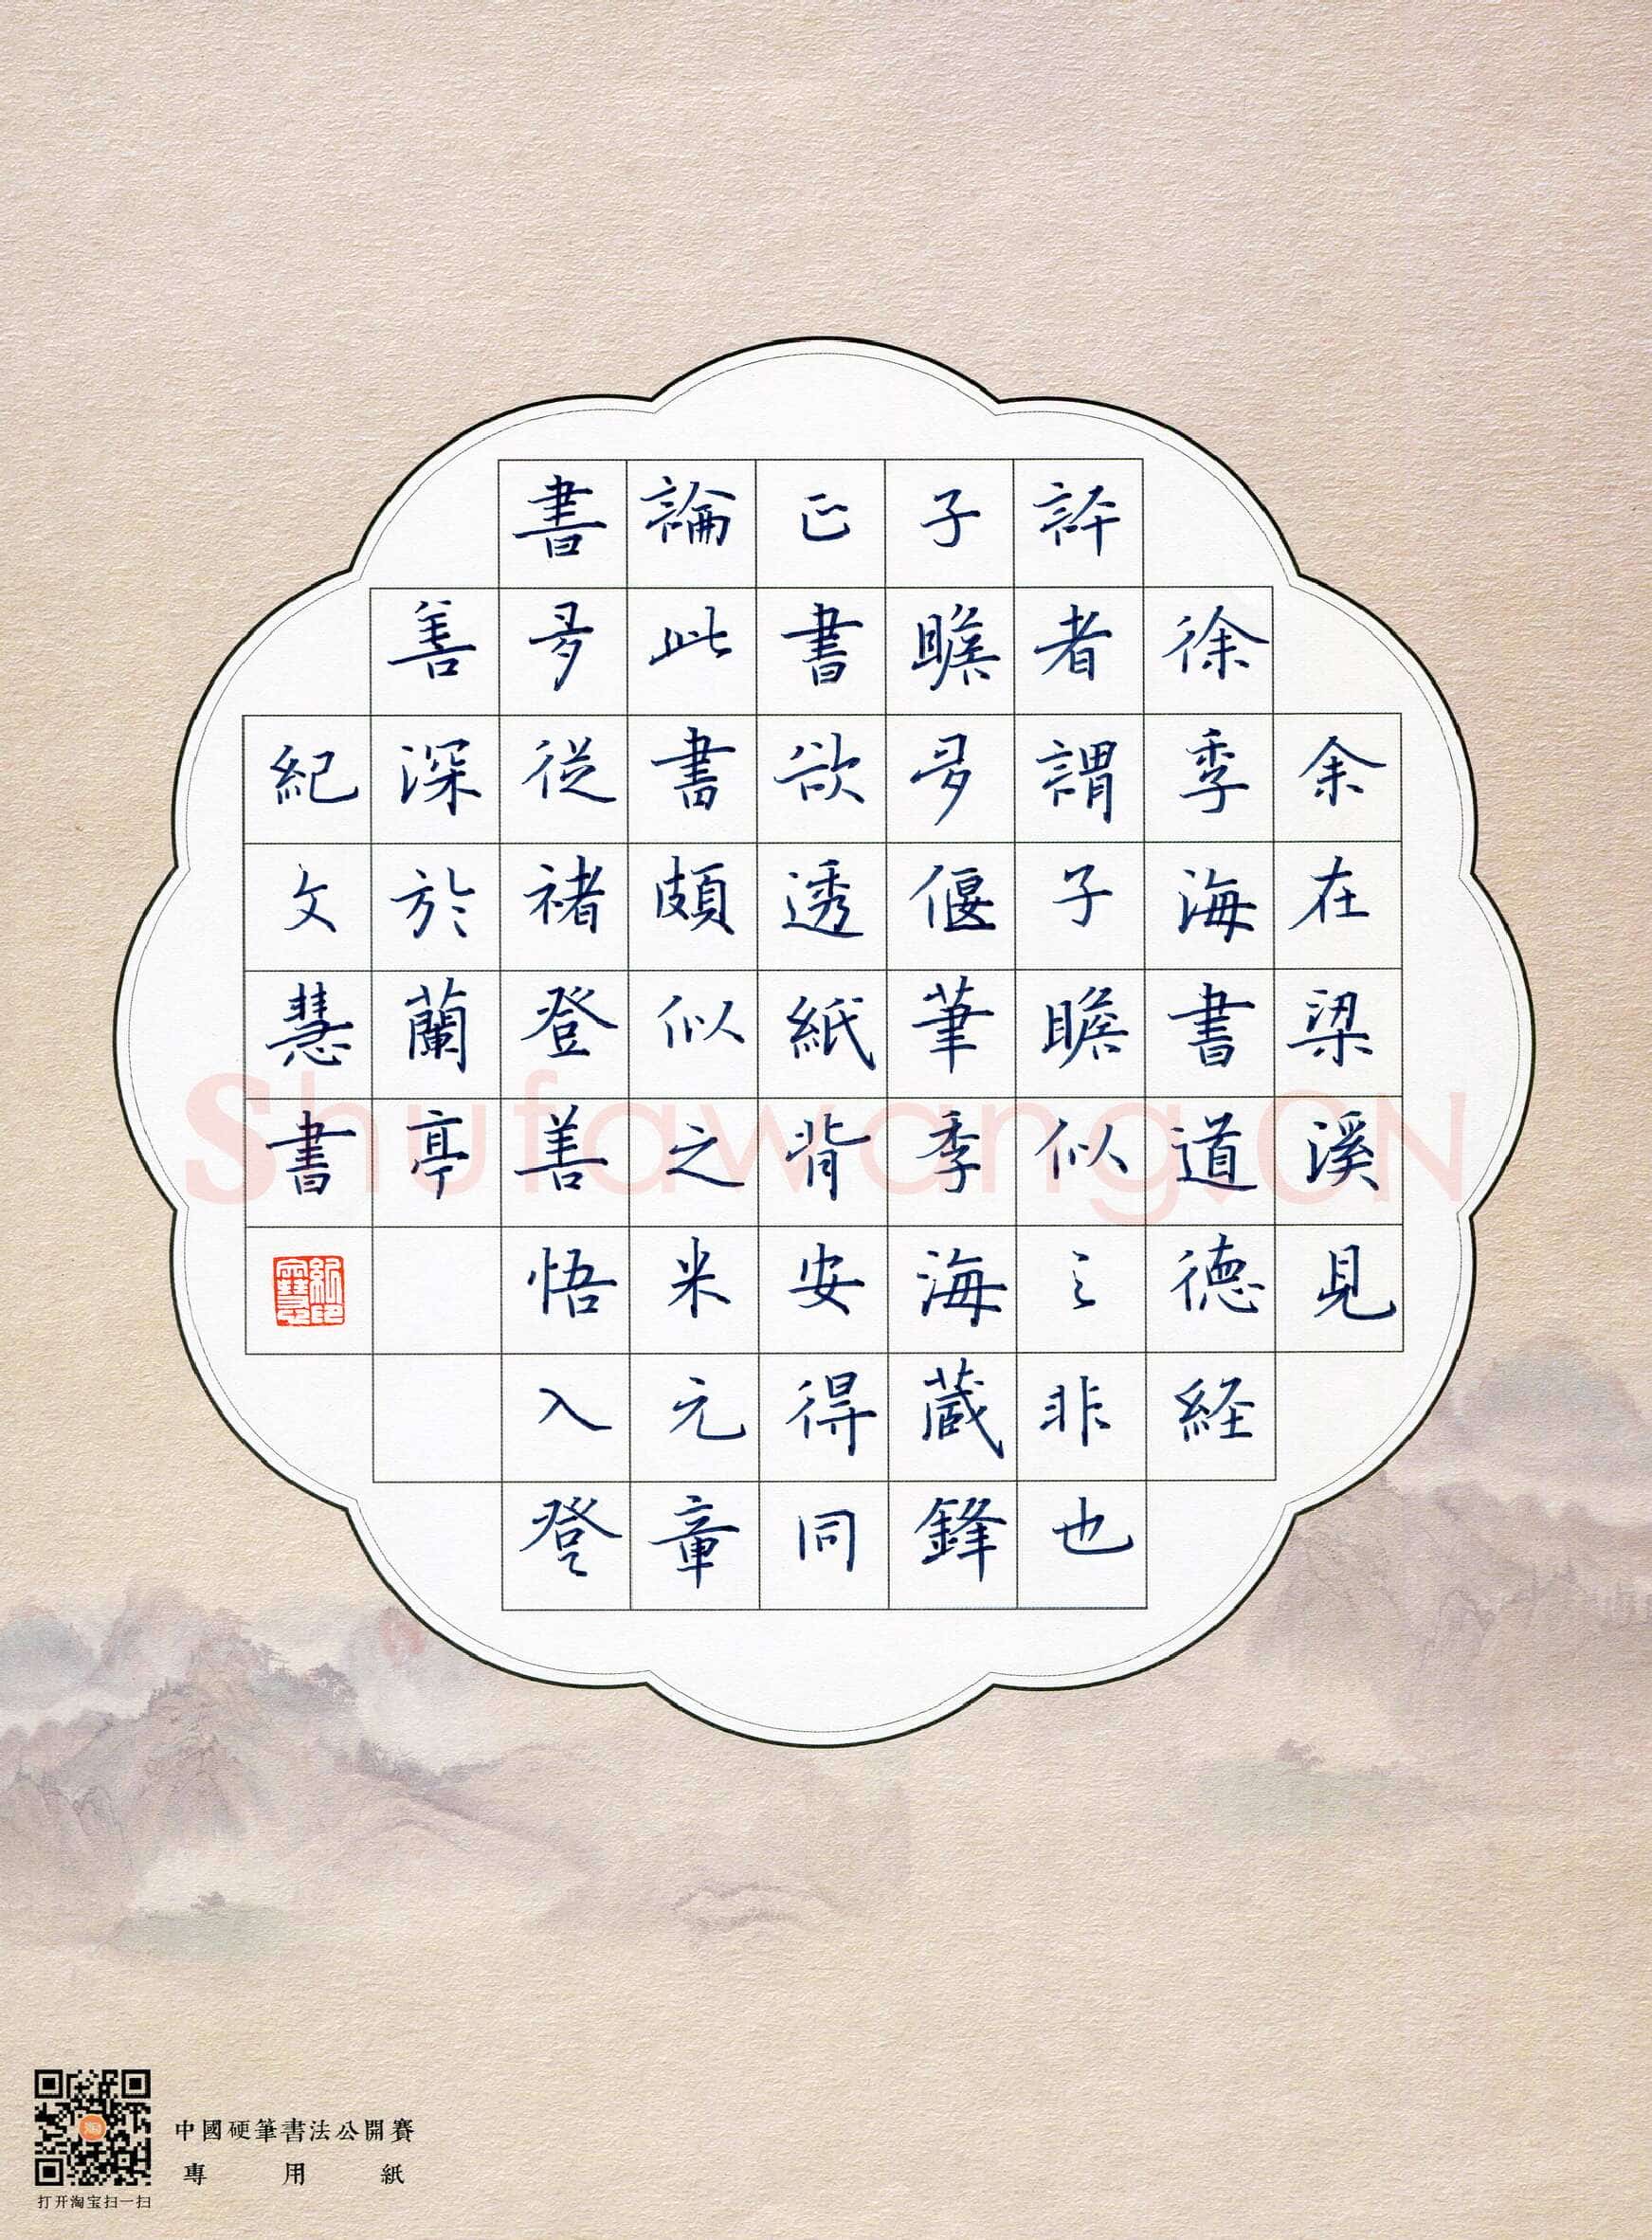 余在梁溪見
徐季海書道德経
評者謂子瞻似之非也
子瞻多偃筆季海藏鋒
正書欲透紙背安得同
論此書頗似之米元章
書多從褚登善悟入登
善深於蘭亭
紀文慧書
Shufawang.CN
中國硬筆書法公開賽
專用紙
淘
打开淘宝扫一扫